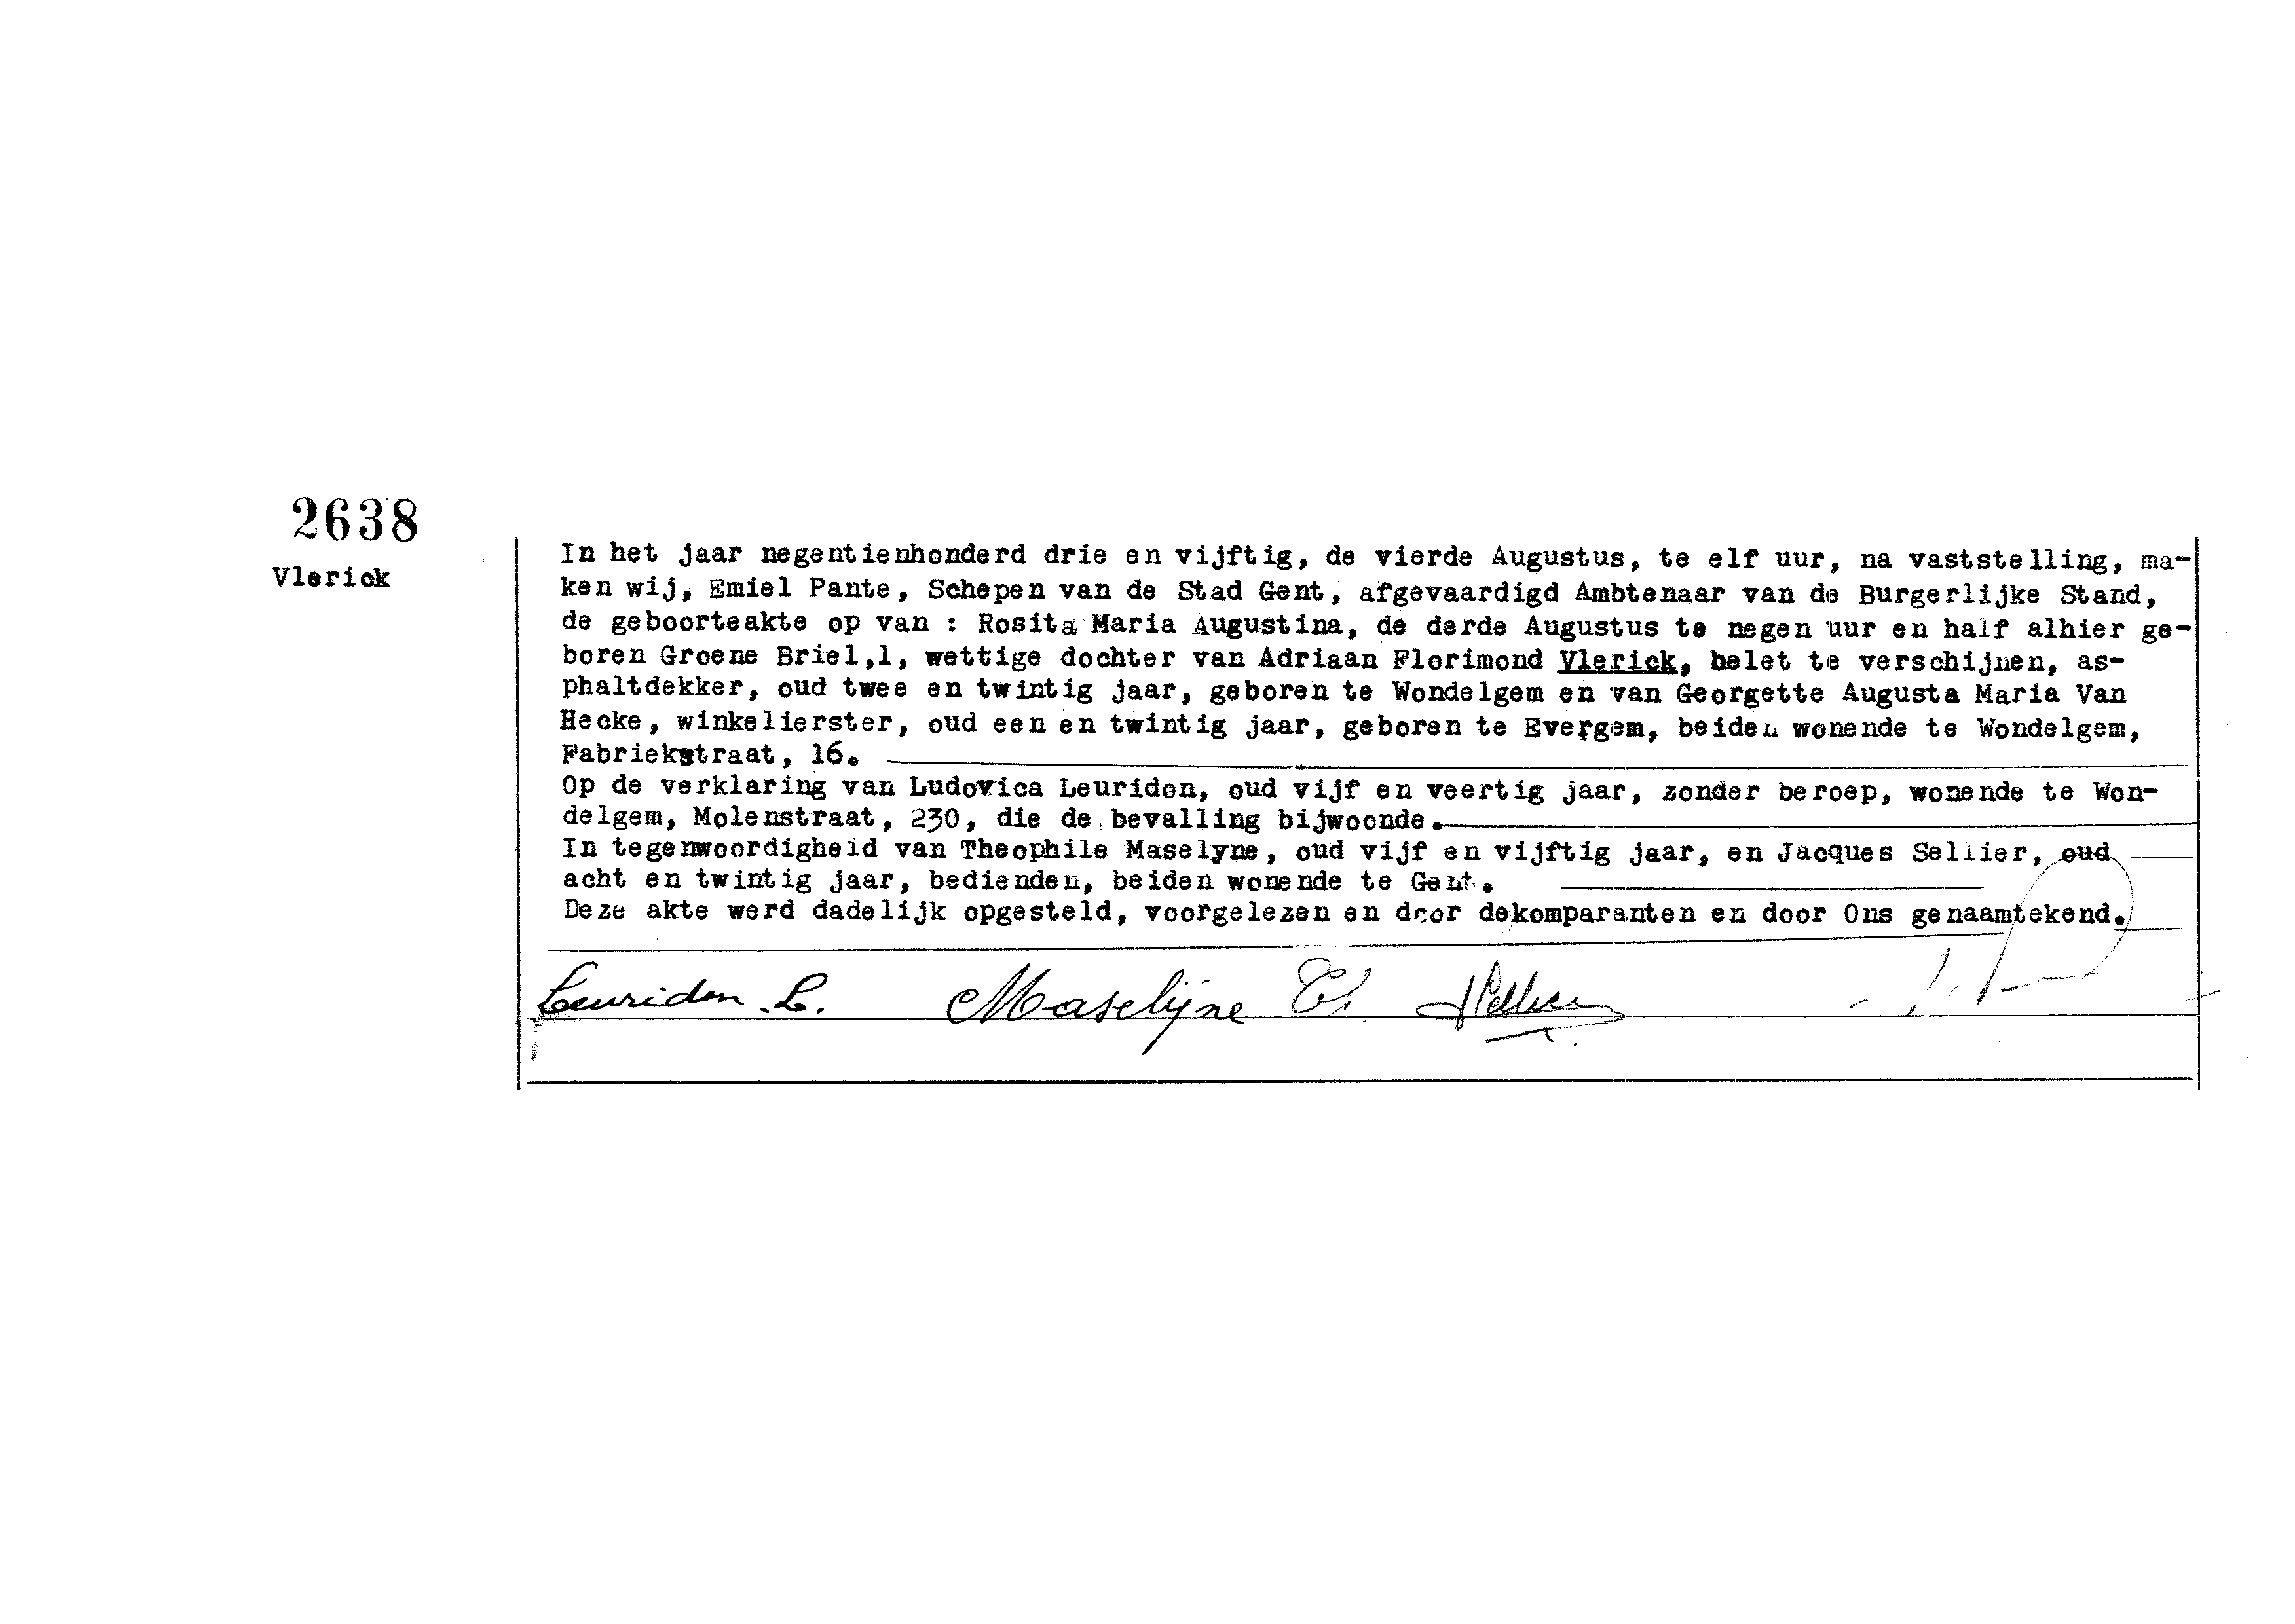 2638
Vlerick
In het jaar negentienhonderd drie en vijftig, de vierde Augustus, te elf uur, na vaststelling, ma-
ken wij, Emiel Pante, Schepen van de Stad Gent, afgevaardigd Ambtenaar van de Burgerlijke Stand,
de geboorteakte op van : Rosita Maria Augustina, de derde Augustus te negen uur en half alhier ge-
boren Groene Briel,1, wettige dochter van Adriaan Florimond Vlerick, belet te verschijnen, as-
phaltdekker, oud twee en twintig jaar, geboren te Wondelgem en van Georgette Augusta Maria Van
Hecke, winkelierster, oud een en twintig jaar, geboren te Evergem, beiden wonende te Wondelgem,
Fabriekstraat, 16.
Op de verklaring van Ludovica Leuridon, oud vijf en veertig jaar, zonder beroep, wonende te Won-
delgem, Molenstraat, 230, die de bevalling bijwoonde.
In tegenwoordigheid van Theophile Maselyne, oud vijf en vijftig jaar, en Jacques Sellier, oud
acht en twintig jaar, bedienden, beiden wonende te Gent.
Deze akte werd dadelijk opgesteld, voorgelezen en door dekomparanten en door Ons genaamtekend.
Leuridon .L. Maselijne Th. JSellier